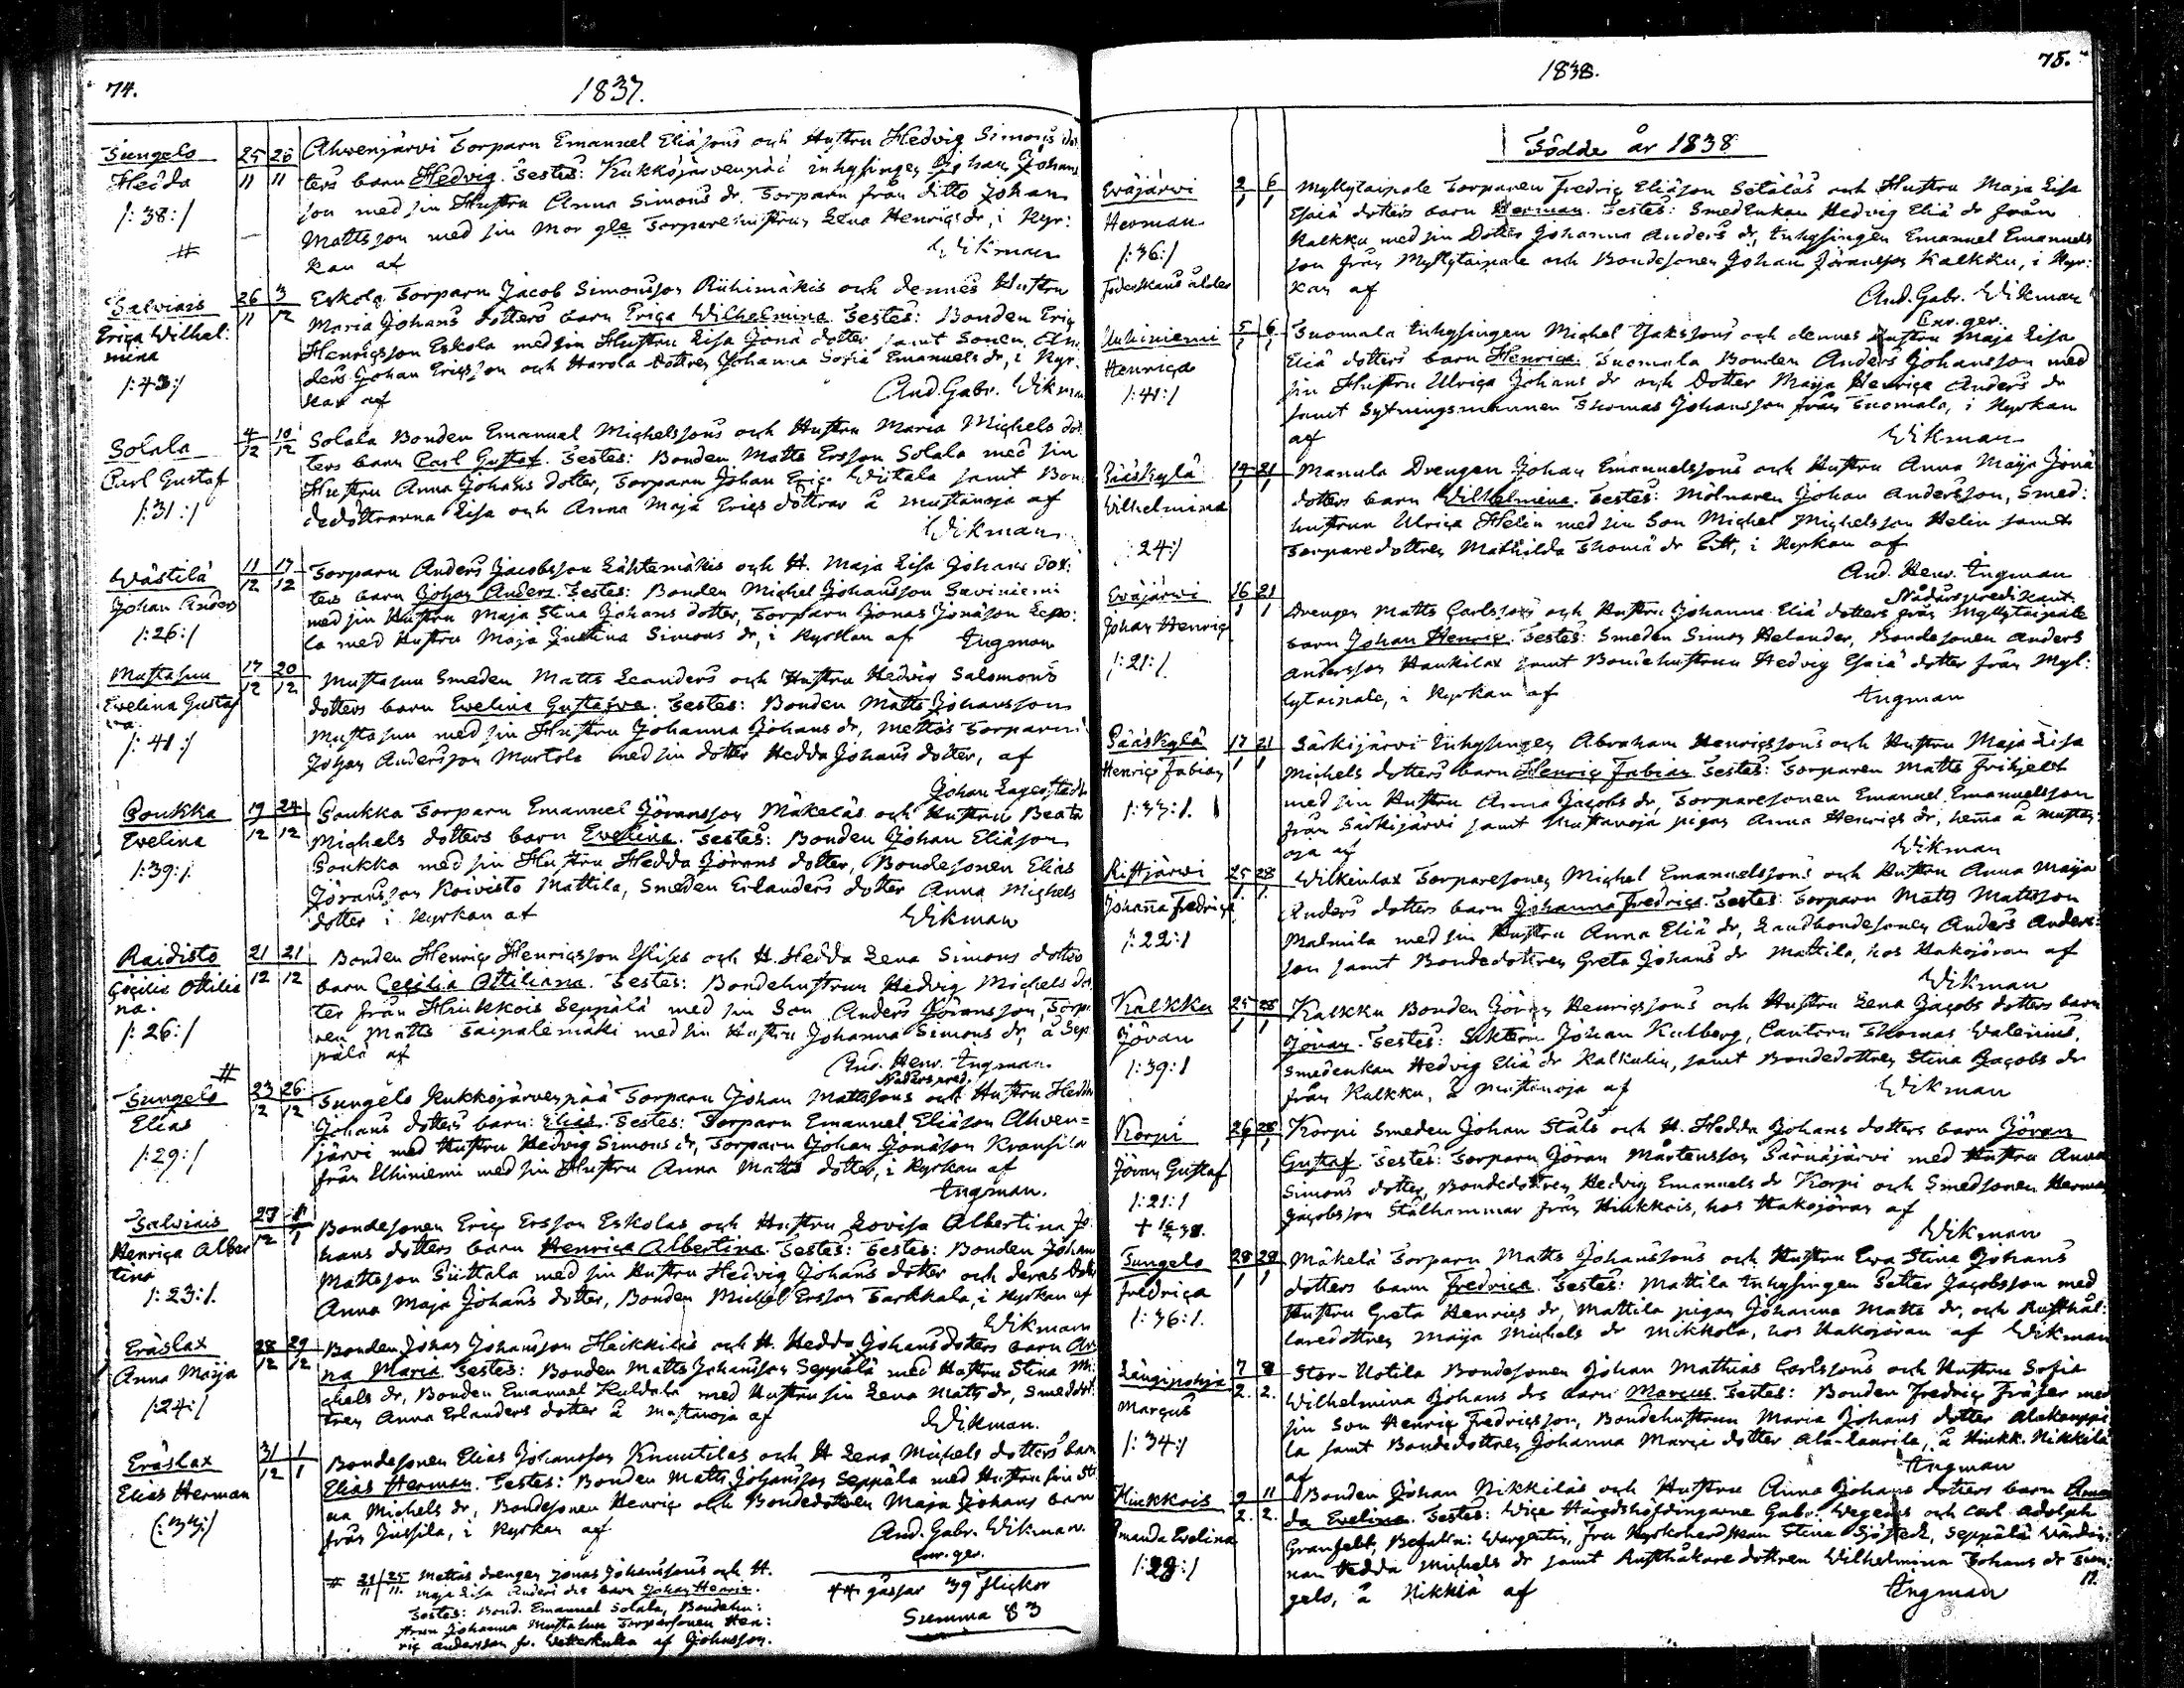 74.
1837.
Sungelo
Hedda
/:38:/
#
25 26
11 11
Ahvenjärvi Torparn Emanuel Eliæsons och Hustru Hedvig Simons dot
ters barn Hedvig. Testes: Kukkojärvenpää inhysingen Johan Johans
son med sin Hustru Anna Simons dr. Torparn från ditto Johan
Mattsson med sin Mor gle Torparehustrun Lena Henrics dr, i Kyr:
kan af
Wikman
Salvinis
Erica Wilhel:
mina
/:43:/
26 3
11 12
Eskola Torparn Jacob Simonsson Riihimäkis och dennes Hustru
Maria Johans dotters barn Erica Wilhelmina. Testes: Bonden Eric
Henricsson Eskola med sin Hustru Lisa Jona dotter samt Sonen An:
ders Johan Ericsson och Harola dottren Johanna Sofia Emanuels dr, i Kyr:
kan af
And. Gabr. Wikman
Solala
Carl Gustaf
/:31:/
4 10
12 12
Solala Bonden Emanuel Michelssons och Hustru Maria Michels dot
ters barn Carl Gustaf. Testes: Bonden Matts Ersson Solala med sin
Hustru Anna Johans dotter, Torparn Johan Eric Wiitala samt Bon
dedöttrarna Lisa och Anna Maja Erics döttrar å Mustanoja af
Wikman
Wästilä
Johan Anders
/:26:/
11 17
12 12
Torparn Anders Jacobsson Lähtemäkis och H. Maja Lisa Johans dot:
ters barn Johan Anders. Testes: Bonden Michel Johansson Saviniemi
med sin Hustru Maja Stina Johans dotter, Torparn Jonas Jonason Lepo:
la med Hustru Maja Justina Simons dr, i Kyrkan af
Ingman
Mustasuu
Evelina Gustaf
va.
/:41:/
17 20
12 12
Mustasuu Smeden Matts Leanders och Hustru Hedvig Salomons
dotters barn Evelina Gustafva. Testes: Bonden Matts Johansson
Mustasuu med sin Hustru Johanna Johans dr, Torparn
Johan Andersson Martola med sin dotter Hedda Johans dotter, af
Johan Lagerstedt
Poukka
Evelina
/:39:/
19 24
12 12
Poukka Torparn Emanuel Jöransson Mäkeläs och Hustru Beata
Michels dotters barn Evelina. Testes: Bonden Johan Eliæson
Poukka med sin Hustru Hedda Jörans dotter, Bondesonen Elias
Jöransson Koivisto Mattila, Smeden Erlanders dotter Anna Michels
dotter i Kyrkan af
Wikman
Raidisto
Cecilia Ottilia
na.
/:26:/
21 21
12 12
Bonden Henric Henricsson Ylises och H. Hedda Lena Simons dotters
barn Cecilia Ottiliana. Testes: Bondehustrun Hedvig Michels dot
ter från Hiukkois Seppälä med sin Son Anders Jöransson, Torpa
ren Matts Taipalemäki med sin Hustru Johanna Simons dr, å Sep
pälä af
And. Henr. Ingman
Nådårspred.
#
Sungelo
Elias
/:29:/
23 26
12 12
Sungelo Kukkojärvenpää Torparn Johan Mattssons och Hustru Hedda
Johans dotters barn: Elias. Testes: Torparn Emanuel Eliæson Ahven=
järvi med Hustru Hedvig Simons dr, Torparn Johan Jonason Kransila
från Uhiniemi med sin Hustru Anna Matts dotter, i Kyrkan af
Ingman.
Salvinis
Henrica Alber
tina
/:23:/
27 1
12 1
Bondesonen Eric Ersson Eskolas och Hustru Lovisa Albertina Jo
hans dotters barn Henrica Albertina. Testes: Testes: Bonden Johan
Mattsson Siittala med sin Hustru Hedvig Johans dotter och deras dotter
Anna Maja Johans dotter, Bonden Michel Ersson Tarkkala, i Kyrkan af
Wikman
Eräslax
Anna Maija
/:24:/
28 29
12 12
Bonden Johan Johansson Heikkiläs och H. Hedda Johans dotters barn An
na Maria. Testes: Bonden Matts Johansson Seppälä med Hustru Stina Mi:
chels dr, Bonden Emanuel Kuldala med Hustru sin Lena Matts dr, Smeddot
tren Anna Erlanders dotter å Mustanoja af
Wikman.
Eräslax
Elias Herman
(:33:)
31 1
12 1
Bondesonen Elias Johansson Knuutilas och H Lena Michels dotters barn
Elias Herman. Testes: Bonden Matts Johansson Seppälä med Hustru sin Sti
na Michels dr, Bondesonen Henric och Bondedottren Maja Johans barn
från Jussila, i Kyrkan af
And. Gabr. Wikman.
Cur. ger.
# 21/11 25/11 Mattas drengen Jonas Johanssons och H.
Maja Lisa Anders drs barn Johan Henric.
Testes: Bond. Emanuel Solala, Bondehu:
strun Johanna Mustasuu Torparsonen Hen:
ric Andersson fr. af Johnsson.
44 gåssar 39 flickor
Summa 83
75.
1838.
Födde år 1838
Eväjärvi
Herman
/:36:/
Föderskans ålder
2 6
1 1
Myllytaipale Torparen Fredric Eliæson Setäläs och Hustru Maja Lisa
Esaiæ dotters barn Herman. Testes: Smedenkan Hedvig Eliæ dr från
Kalkku med sin Dotter Johanna Anders dr, Inhysingen Emanuel Emanuels
son från Myllytaipale och Bondesonen Johan Jöransson Kalkku, i Kyr:
kan af
And. Gabr. Wikman
Cur. ger.
Uuhiniemi
Henrica
/:41:/
5 6
1 1
Suomala Inhysingen Michel Isakssons och dennes Hustru Maja Lisa
Eliæ dotters barn Henrica. Suomala Bonden Anders Johansson med
sin Hustru Ulrica Johans dr och Dotter Maija Henrica Anders dr
samt Sytningsmannen Thomas Johansson från Suomala, i Kyrkan
af
Wikman
Pääskylä
Wilhelmina
:24:/
14 21
1 1
Manula Drengen Johan Emanuelssons och Hustru Anna Maija Jona
dotters barn Wilhelmina. Testes: Mölnaren Johan Andersson, Smed:
hustrun Ulrica Helin med sin Son Michel Michelsson Helin samt
Torparedottren Mathilda Thomæ dr Sitt, i Kyrkan af
And. Henr. Ingman
Nådårspredikant.
Eväjärvi
Johan Henric
/:21:/
16 21
1 1
Drengen Matts Carlssons och Hustru Johanna Eliæ dotters från Myllytaipale
barn Johan Henric. Testes: Smeden Simon Helander, Bondesonen Anders
Andersson Haukilax samt Bondehustrun Hedvig Esaiæ dotter från Myl:
lytaipale, i Kyrkan af
Ingman
Pääskylä
Henric Fabian
/:33:/.
17 21
1 1
Särkijärvi Inhysingen Abraham Henricssons och Hustru Maja Lisa
Michels dotters barn Henric Fabian. Testes: Torparen Matts Frihjelt
med sin Hustru Anna Jacobs dr, Torparesonen Emanuel Emanuelsson
från Särkijärvi samt Mustanoja pigan Anna Henrics dr, hema å Mustan
oja af
Wikman
Ristjärvi
Johanna Fredrica
/:22:/
25 28
1 1
Wilkenlax Torparesonen Michel Emanuelssons och Hustru Anna Maija
Anders dotters barn Johanna Fredrica. Testes: Torparn Matts Mattsson
Malmila med sin Hustru Anna Eliæ dr, Landbondesonen Anders Anders
son samt Bondedottren Greta Johans dr Mattila, hos Hakojöran af
Wikman
Kalkku
Jöran
/:39:/
25 28
1 1
Kalkku Bonden Jöran Henricssons och Hustru Lena Jacobs dotters barn
Jöran. Testes: Johan Kulberg, Cantorn Thomas Walenius,
Smedenkan Hedvig Eliæ dr Kalkulin, samt Bondedottren Stina Jacobs dr
från Kalkku, å Mustanoja af
Wikman
Korpi
Jöran Gustaf
/:21:/
+ 38.
26 28
1 1
Korpi Smeden Johan Ståls och H. Hedda Johans dotters barn Jöran
Gustaf. Testes: Torparn Jöran Mårtensson Särnäjärvi med Hustru Anna
Simons dotter, Bondedottren Hedvig Emanuels dr Korpi och Smedsonen Herman
Jacobsson Stålhammar från Hiukkois, hos Hakojöran af
Wikman
Sungelo
Fredrica
/:36:/.
28 28
1 1
Mäkelä Torparn Matts Johanssons och Hustru Ewa Stina Johans
dotters barn Fredrica. Testes: Mattila Inhysingen Petter Jacobsson med
Hustru Greta Henrics dr, Mattila pigan Johanna Matts dr, och Rusthål:
laredottren Maija Michels dr Mikkola, hos Hakojöran af Wikman
Längipohja
Marcus
/:34:/
7 8
2. 2.
Stor-Uotila Bondesonen Johan Mathias Carlssons och Hustru Sofia
Wilhelmina Johans drs barn Marcus. Testes: Bonden Fredric Fräser med
sin Son Henric Fredricsson, Bondehustrun Maria Johans dotter Alakauppi
la samt Bondedottren Johanna Marci dotter Ala-Laurila, å Hiukk. Nikkilä
af
Ingman
Hiukkois
Amanda Evelina
/:29:/
9 11
2. 2.
Bonden Johan Nikkiläs och Hustru Anna Johans dotters barn Aman
da Evelina. Testes: Wice Häradshöfdingarne Gabr: Wegelius och Carl Adolph
Granfelt, Befalln: Wargentin, Fru Kyrkoherdskan Stina Sjöstedt, Seppälä Wärdin:
nan Hedda Michels dr samt Rusthållaredottren Wilhelmina Johans dr Sun:
gelo, å Nikkilä af
Ingman
12.